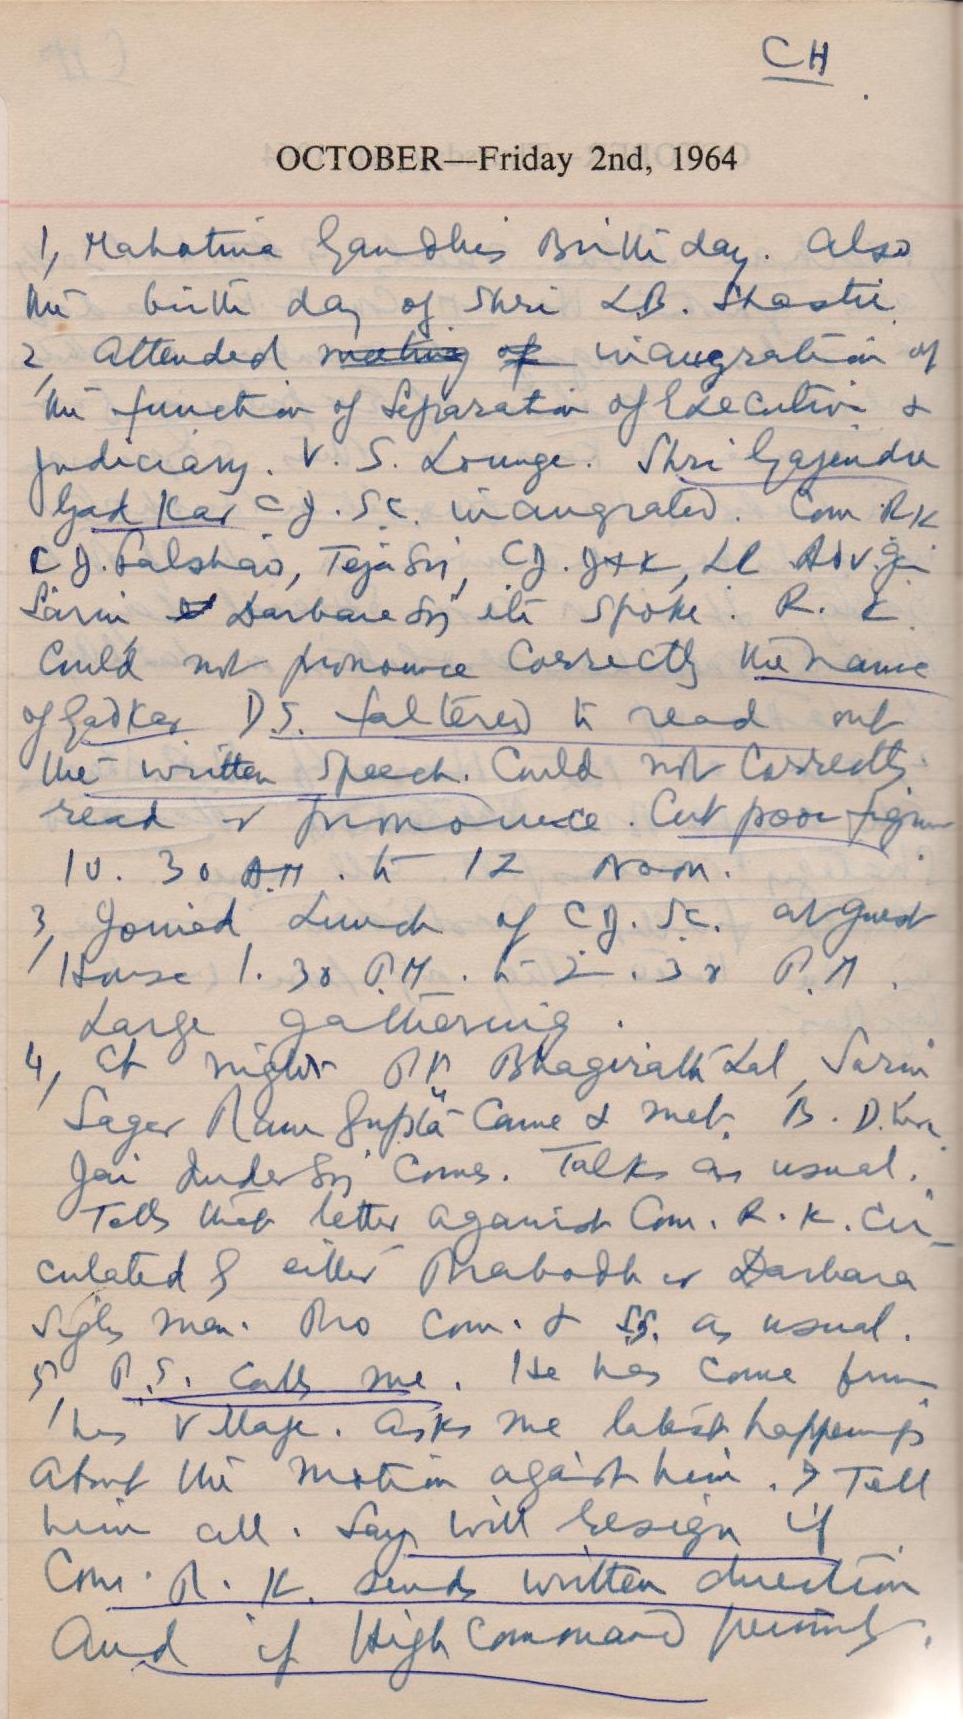 CH
OCTOBER—Friday 2nd, 1964
1, Mahatma Gandhis Birth day. Also
the birth day of Shri L.B. Shastri.
2, Attended meeting of inaugration of
the function of Separation of Executive &
Judiciary. V. S. Lounge. Shri Gajendra
Gad Kar C J. S.C. inaugrated. Com R K
C J. Falshao, Teja Sgh, C J. J & K, LR Adv. Gen
Sarin & Darbara Sgh etc spoke. R. K.
Could not pronounce correctly the name
of Gadkar D S. faltered to read out
the written speech. Could not correctly
read & pronounce. Cut poor figure
10. 30 A.M. to 12 Noon.
3, Joined Lunch of C J. S.C. at Guest
House 1. 30 P.M. to 2. 30 P.M.
Large gathering.
4, At night Bhagirath Lal, Sarin
Sager Ram Gupta Came & met. B. D.
Jai Inder Sgh Comes. Talks as usual.
Tells that letter against Com. R. K. Cir-
culated by either Prabodh or Darbara
Sighs men. Pro Com. & as usual.
5, P.S. Calls me. He has come from
his Village. Asks me latest happenings
About the motion against him. I Tell
him all. Says will resign if
Com. R. K. sends written direction
And if High Command permits.